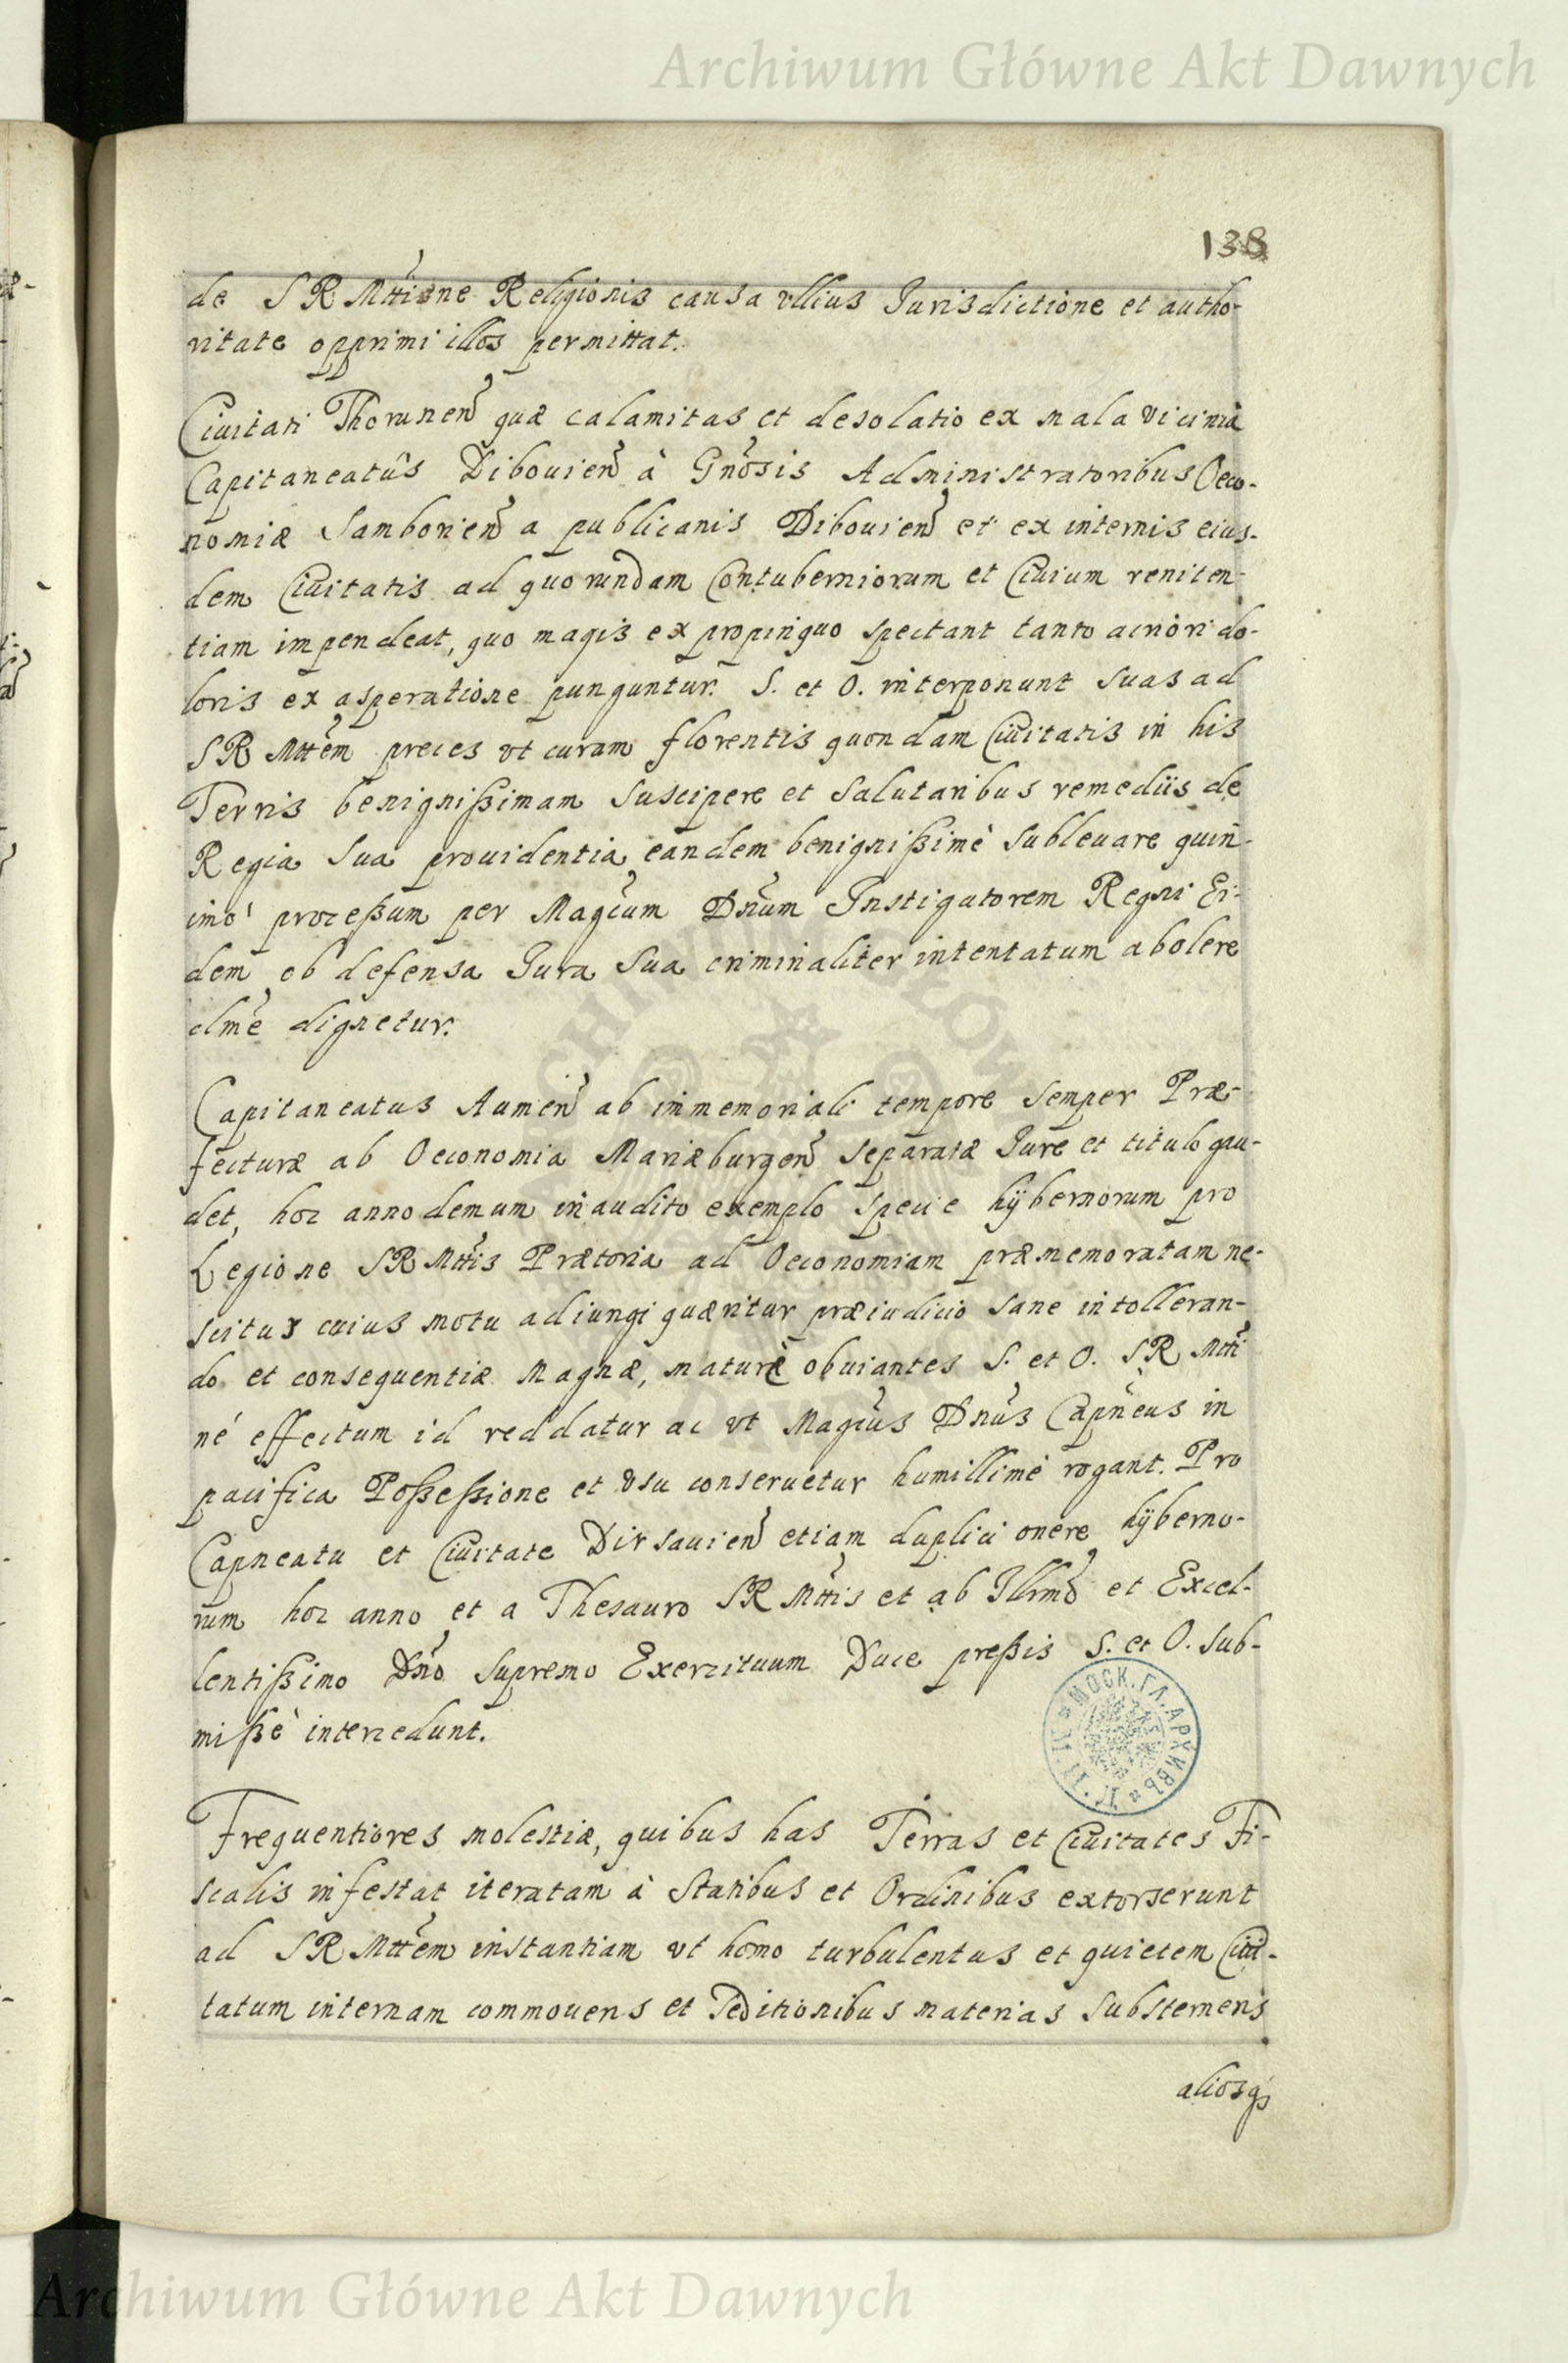 Archiwum Główne Akt Dawnych
138
de S R Mttis ne Religionis causa vllius Jurisdictione et autho-
ritate opprimi illos permittat.
Ciuitati Thorunen̄ quæ calamitas et desolatio ex mala vicinia
Capitaneatûs Dibouien̄ à Gn̄osis Administratoribus Oeco-
nomiæ Samborien̄ a publicanis Dibouien̄ et ex internis eius-
dem Ciuitatis ad quorundam Contuberniorum et Ciuium reniten-
tiam impendeat, quo magis ex propinquo spectant tanto acriori do-
loris exasperatione punguntur. S. et O. interponunt suas ad
S R Mttem preces vt curam florentis quondam Ciuitatis in his
Terris benignißimam suscipere et salutaribus remediis de
Regia sua prouidentia eandem benignißimè subleuare quin-
imò proceßum per Magcum Dnum Instigatorem Regni Ei-
dem ob defensa Jura sua criminaliter intentatum abolere
clme dignetur.
Capitaneatus Aumen̄ ab immemoriali tempore semper Præ-
fecturæ ab Oeconomia Mariæburgen̄ separatæ Jure et titulo gau-
det, hoc anno demum inaudito exemplo specie hÿbernorum pro
Legione S R Mttis Prætoria ad Oeconomiam præmemoratam ne-
scitur cuius motu adiungi quæritur præiudicio sane intolleran-
do et consequentiæ Magnæ, maturè obuiantes S. et O. S R Mtti
né effectum id reddatur ac vt Magcus Dnus Capneus in
pacifica Poßeßione et vsu conseruetur humillimè rogant. Pro
Capneatu et Ciuitate Dirsauien̄ etiam duplici onere hÿberno-
rum hoc anno et a Thesauro S R Mttis et ab Illmo et Excel-
lentißimo Dno Supremo Exercituum Duce preßis S. et O. sub-
mißè intercedunt.
Frequentiores molestiæ, quibus has Terras et Ciuitates Fi-
scalis infestat iteratam à Statibus et Ordinibus extorserunt
ad S R Mttem instantiam vt homo turbulentus et quietem Ciui-
tatum internam commouens et Seditionibus materias substernens
aliosq₃
МОСК. ГЛ. АРХИВЪ
Archiwum Główne Akt Dawnych